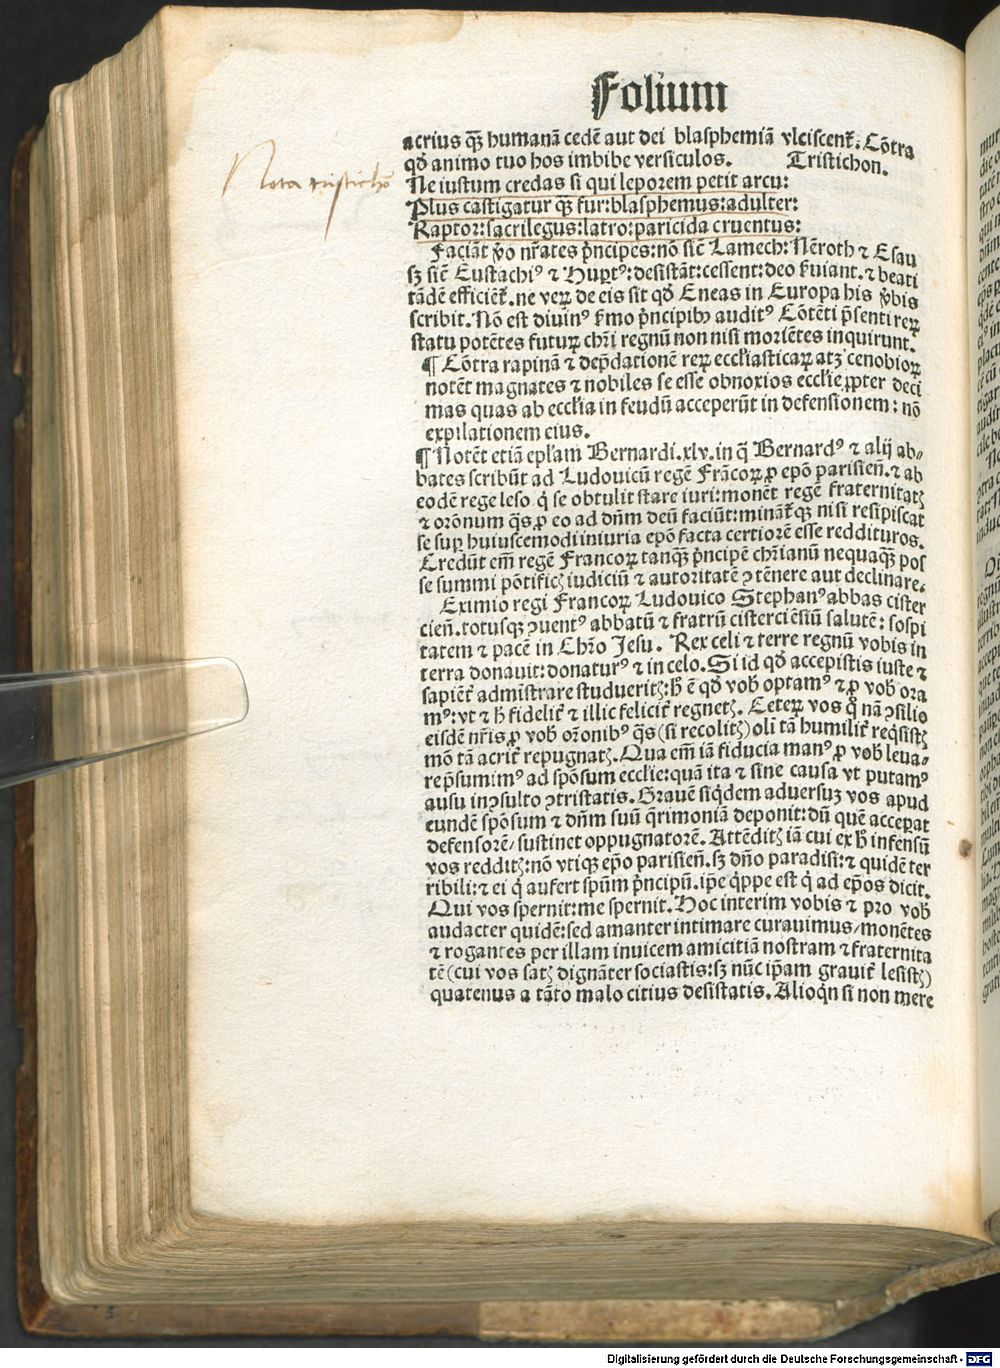 Folium
acrius qȝ humanā cedē aut dei blasphemiā vlciscent̄. Cōtra
qd̄ animo tuo hos imbibe versiculos. Tristichon.
Nota tristichō
Ne iustum credas si qui leporem petit arcu:
Plus castigatur qȝ fur: blasphemus: adulter:
Raptor: sacrilegus: latro: paricida cruentus:
Faciāt ꝟo nr̄ates pͥncipes: nō sic̄ Lamech: Nēroth ⁊ Esau
sꝫ sic̄ Eustachiꝰ ⁊ Hupt̄ꝰ: desistāt: cessent: deo ẜuiant. ⁊ beati
tādē efficiēt̄. ne veꝝ de eis sit qd̄ Eneas in Europa his ꝟbis
scribit. Nō est diuinꝰ ẜmo pͥncipibꝫ auditꝰ Cōtēti p̄senti reꝝ
statu potētes futuꝝ chr̄i regnū non nisi moriētes inquirunt.
¶ Cōtra rapinā ⁊ dep̄dationē reꝝ eccl̄iasticaꝝ atꝫ cenobioꝝ
notēt magnates ⁊ nobiles se esse obnoxios eccl̄ie ꝓpter deci
mas quas ab eccl̄ia in feudū acceperūt in defensionem: nō
expilationem eius.
¶ Notēt etiā ep̄lam Bernardi. xlv. in q̄ Bernardꝰ ⁊ alij ab-
bates scribūt ad Ludouicū regē Frācoꝝ ꝓ ep̄o parisien̄. ⁊ ab
eodē rege leso qͥ se obtulit stare iuri: monēt regē fraternitatꝭ
⁊ or̄onum q̄s ꝓ eo ad dn̄m deū faciūt: mināt̄qꝫ nisi resipiscat
se suꝑ huiuscemodi iniuria ep̄o facta certiorē esse reddituros.
Credūt em̄ regē Francoꝝ tanqȝ pͥncipē chr̄ianū nequaqȝ pos
se summi pōtificꝭ iudiciū ⁊ autoritatē ꝯtēnere aut declinare.
Eximio regi Francoꝝ Ludouico Stephanꝰ abbas cister
cien̄. totusqꝫ ꝯuentꝰ abbatū ⁊ fratrū cisterciēsiū salutē: sospi
tatem ⁊ pacē in Chr̄o Jesu. Rex celi ⁊ terre regnū vobis in
terra donauit: donaturꝰ ⁊ in celo. Si id qd̄ accepistis iuste ⁊
sapiēt̄ admīstrare studueritꝭ: h̄ ē qd̄ vob̄ optamꝰ ⁊ ꝓ vob̄ ora
mꝰ: vt ⁊ h̄ fidelit̄ ⁊ illic felicit̄ regnetꝭ. Ceteꝝ vos qͥ nā ꝯsilio
eisdē nr̄is ꝓ vob̄ or̄onibꝰ q̄s (si recolitꝭ) oli̅ tā humilit̄ reqͥsistꝭ
mō tā acrit̄ repugnatꝭ. Qua em̄ iā fiducia manꝰ ꝓ vob̄ leua-
re p̄sumimꝰ ad spōsum eccl̄ie: quā ita ⁊ sine causa vt putamꝰ
ausu inꝯsulto ꝯtristatis. Grauē siqͥdem aduersuꝫ vos apud
eundē spōsum ⁊ dn̄m suū qͥrimoniā deponit: dū quē acceꝑat
defensorē/ sustinet oppugnatorē. Attēditꝭ iā cui ex h̄ infensū
vos redditꝭ: nō vtiqꝫ ep̄o parisien̄. sꝫ dn̄o paradisi: ⁊ quidē ter
ribili: ⁊ ei qͥ aufert spūm pͥncipū. ip̄e qͥppe est qͥ ad ep̄os dicit.
Qui vos spernit: me spernit. Hoc interim vobis ⁊ pro vob̄
audacter quidē: sed amanter intimare curauimus/ monētes
⁊ rogantes per illam inuicem amicitiā nostram ⁊ fraternita
tē (cui vos satꝭ dignāter sociastis: sꝫ nūc ip̄am grauit̄ lesistꝭ)
quatenus a tāto malo citius desistatis. Alioqͥn si non mere
Digitalisierung gefördert durch die Deutsche Forschungsgemeinschaft - DFG